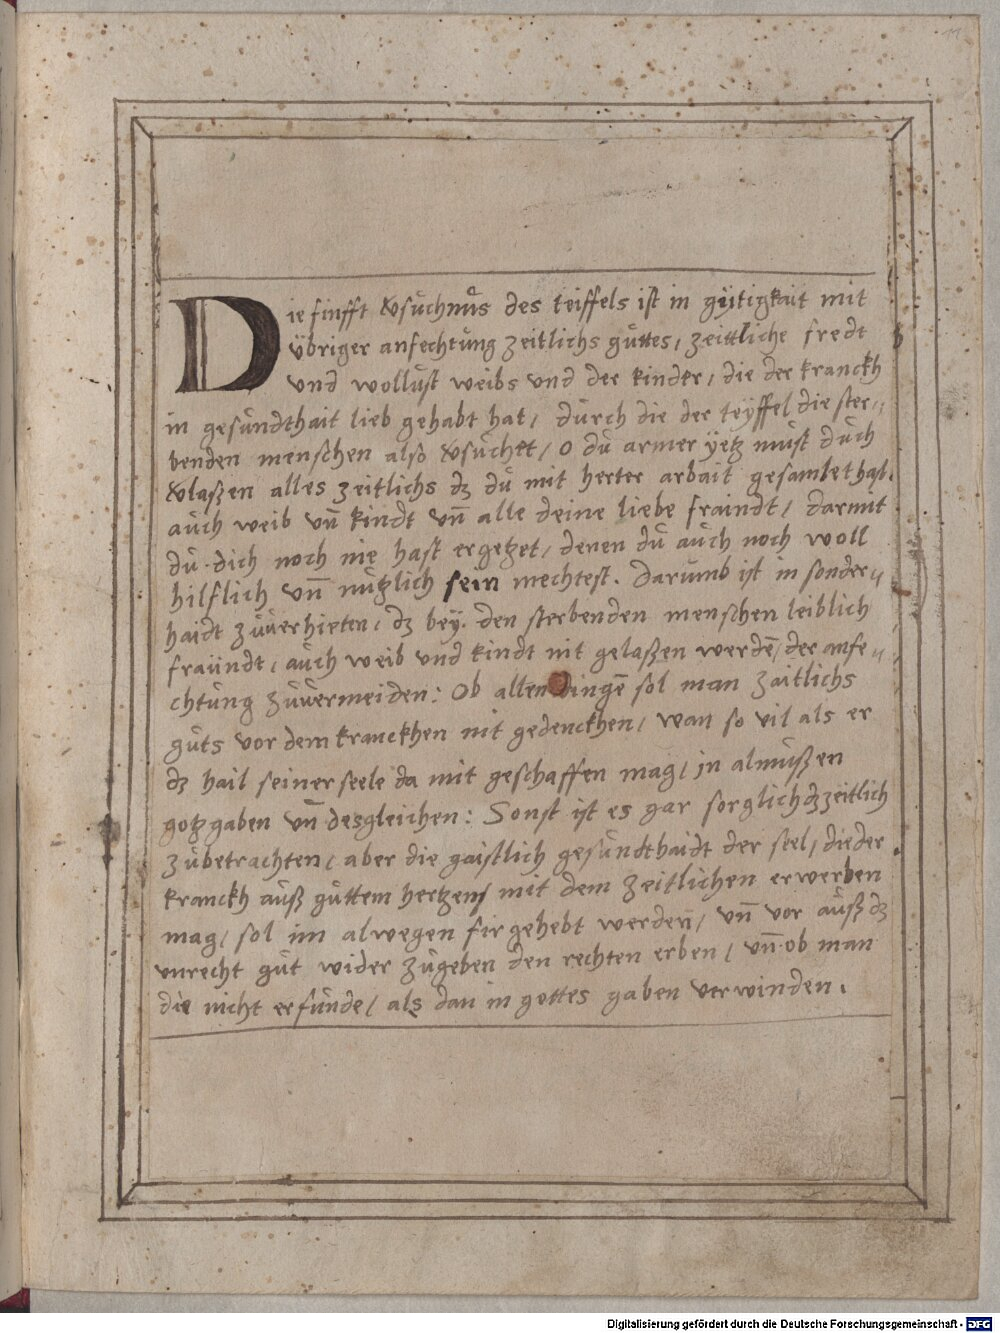 11
Die finfft vsuchnus des teiffels ist in geÿtigkait mit
übriger anfechtung zeitlichs guttes, zeittliche fredt
und wollust weibs und der kinder, die der kranckh
in gesundthait lieb gehabt hat, durch die der teÿffel die ster〃
benden menschen also vsuchtt, o du armer ÿetz must duch
vlaßen alles zeitlichs dz du mit herter arbait gesamlet hast.
auch weib uñ kindt uñ alle deine liebe fraindt, darmit
du dich noch nie hast ergetzet, denen du auch noch woll
hilflich uñ nutzlich sein mechtest. darumb ist in sonder〃
haidt zuverhieten, dz beÿ den sterbenden menschen leiblich
fraündt, auch weib und kindt nit gelaßen werdē, der anfe〃
chtung zuvermeiden: Ob allen dingē sol man zaitlichs
guts vor dem kranckhen nit gedenckhen, wan so vil als er
dz hail seiner seele da mit geschaffen mag, in almußen
gotz gaben uñ desgleichen: Sonst ist es gar sorglich dz zeitlich
zubetrachten, aber die gaistlich gesundthaidt der seel, die der
kranckh auß guttem hertzen, mit dem zeitlichen erwerben
mag, sol im alwegen fir gehebt werden, uñ vor auß dz
unrecht gut wider zugeben den rechten erben, uñ ob man
die nicht erfunde, als dan in gottes gaben verwinden.
Digitalisierung gefördert durch die Deutsche Forschungsgemeinschaft - DFG